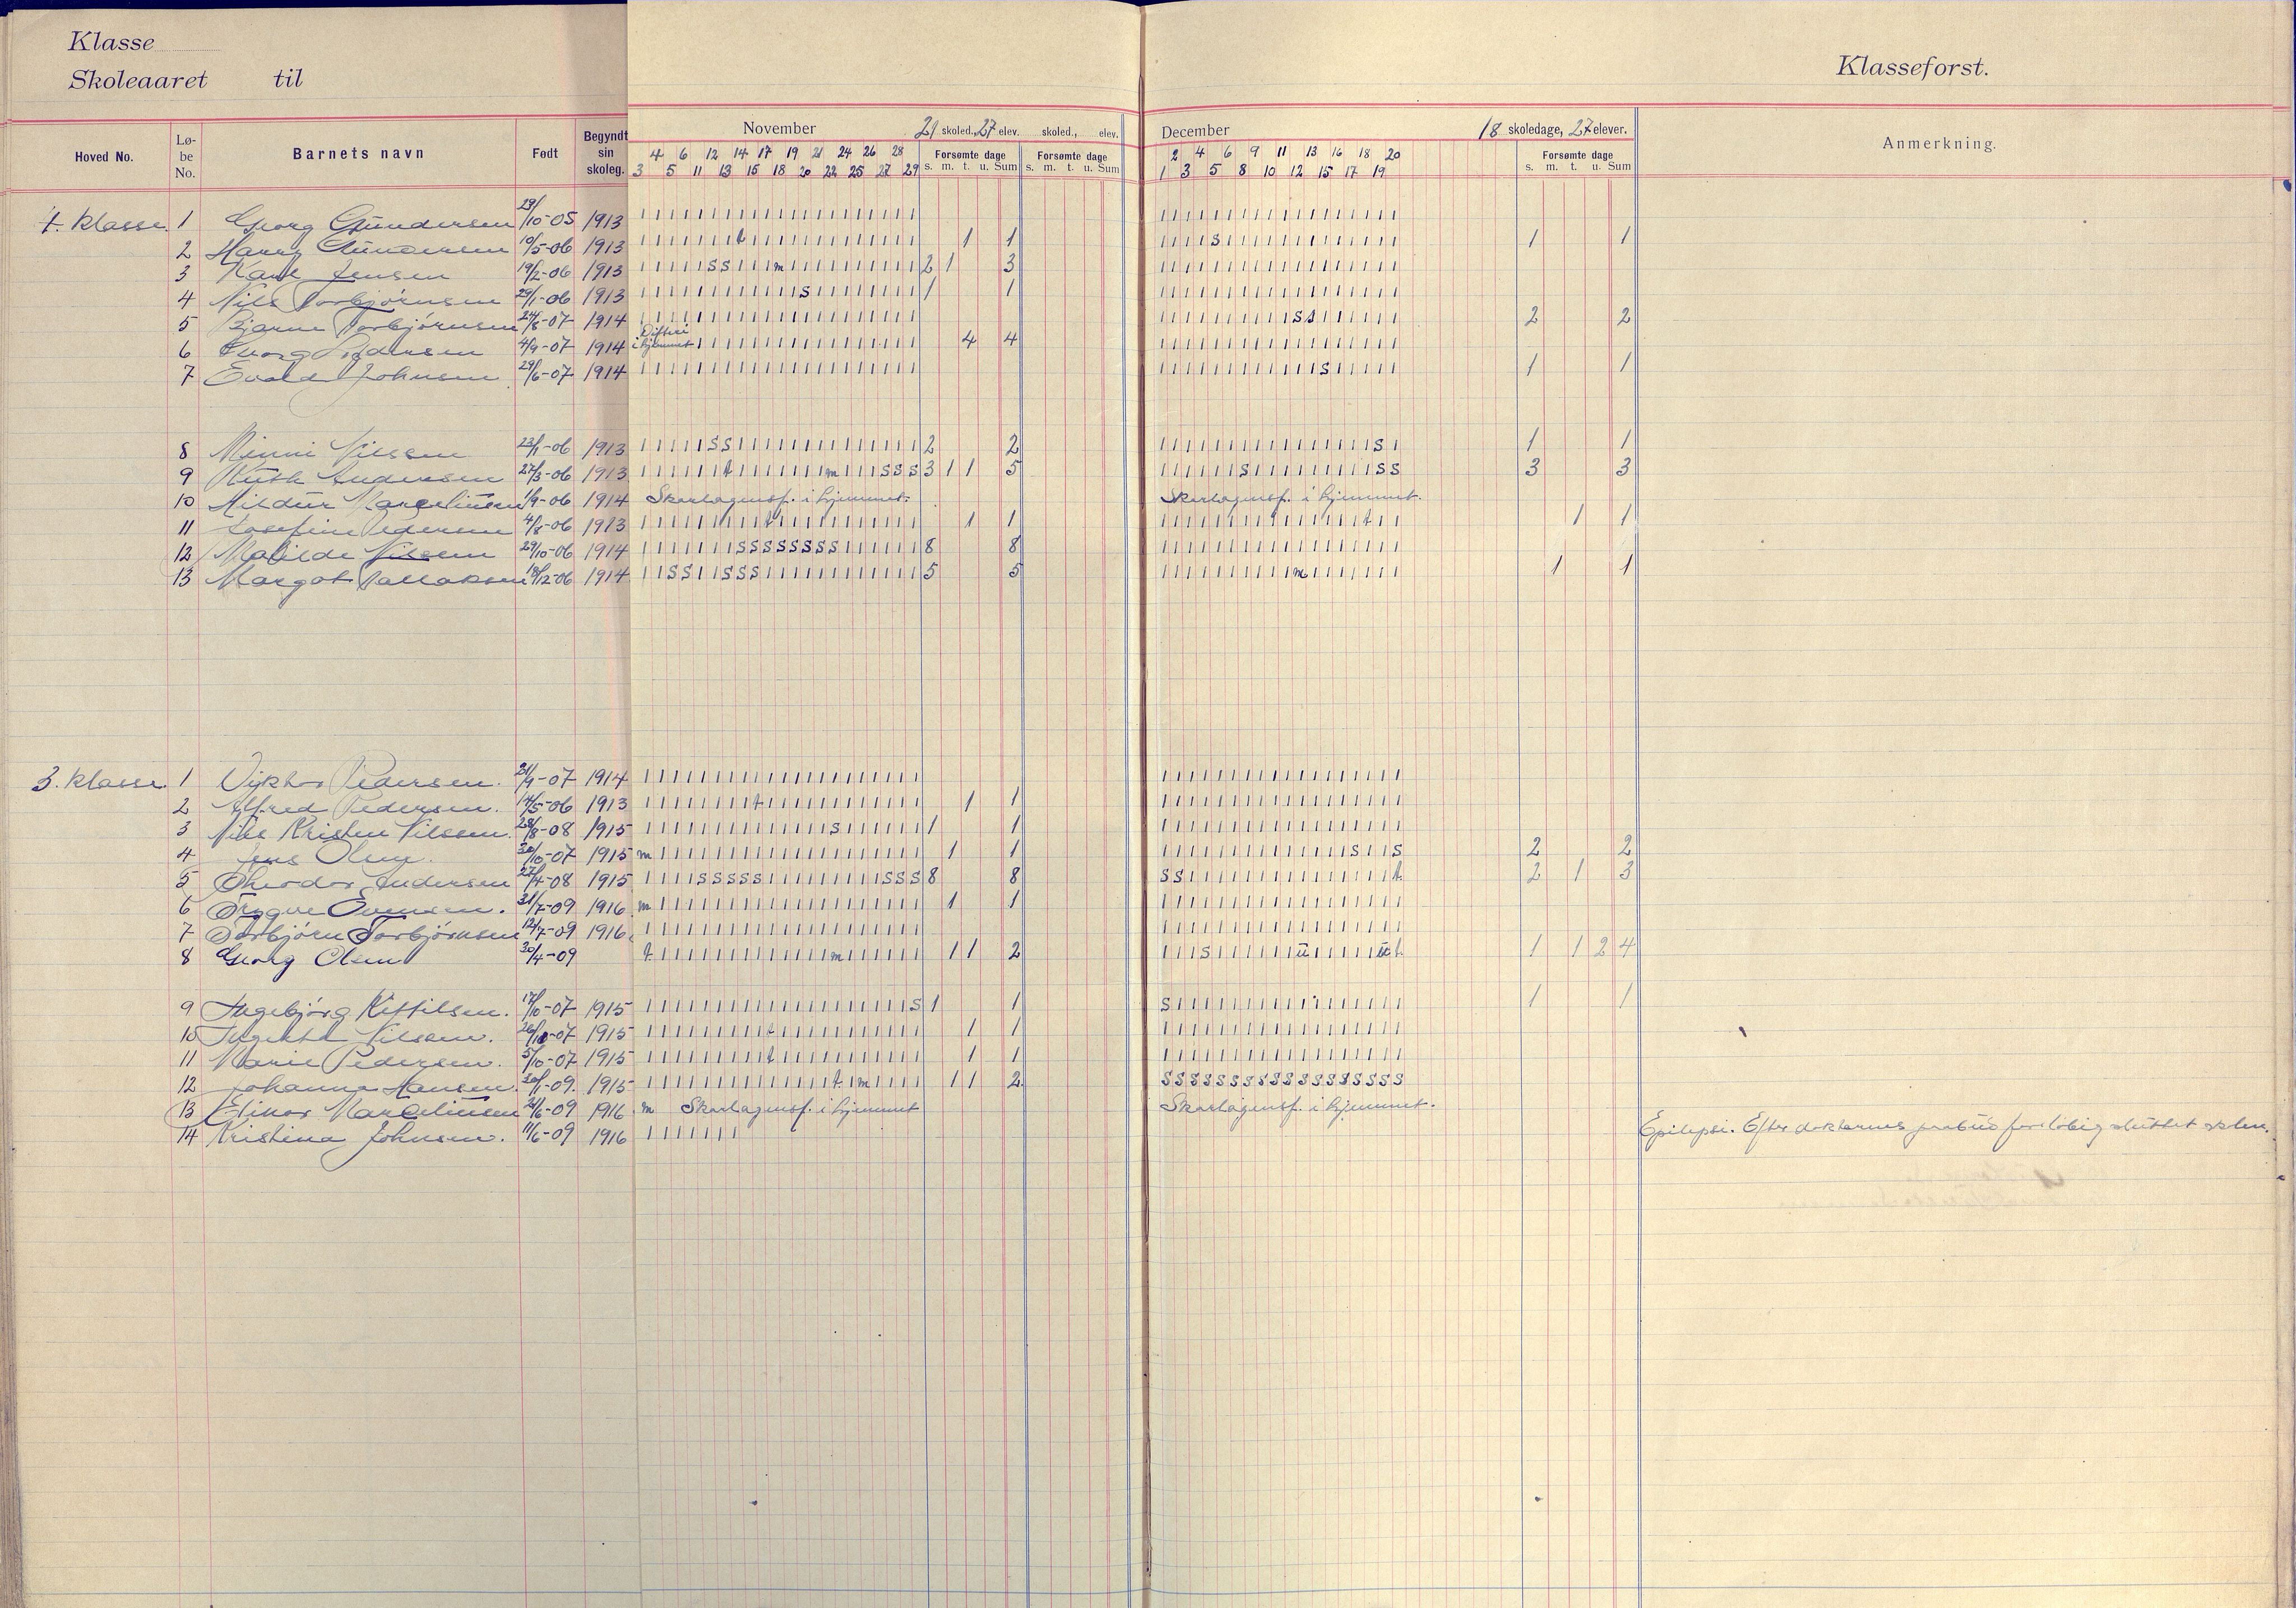 Klasse
Skoleaaret til
Klasseforst.
Hoved No. Lø-be No. Barnets navn Født Begyndt sin skoleg.
November 21 skoled., 27 elev. skoled., elev.
December 18 skoledage, 27 elever.
Anmerkning.
4 6 12 14 17 19 21 24 26 28
3 5 11 13 15 18 20 22 25 27 29
Forsømte dage s. m. t. u. Sum
Forsømte dage s. m. t. u. Sum
2 4 6 9 11 13 16 18 20
1 3 5 8 10 12 15 17 19
Forsømte dage s. m. t. u. Sum
4. klasse. 1 Georg Gundersen 29/10-05 1913 1 1 1 1 1 1 1 1 1 1 1 1 1 1 1 1 1 1 1 1 1
2 Harry Gundersen 10/5-06 1913 t 1 1 s 1 1
3 Karl Jensen 19/2-06 1913 s s m 2 1 3
4 Nils Torbjørnsen 29/1-06 1913 s 1 1
5 Bjarne Torbjørnsen 24/8-07 1914 s s 2 2
6 Georg Pedersen 4/9-07 1914 Difteri i hjemmet 4 4
7 Evald Johnsen 29/6-07 1914 s 1 1
8 Minni Nilssen 23/1-06 1913 s s 2 2 s 1 1
9 Ruth Andersen 27/3-06 1913 t m s s s 3 1 1 5 s s s 3 3
10 Hildur Marceliussen 1/9-06 1914 Skarlagensf. i hjemmet. Skarlagensf. i hjemmet.
11 Josefine Pedersen 4/8-06 1913 t 1 1 t 1 1
12 Matilde Nilsen 29/10-06 1914 s s s s s s s s 8 8
13 Margot Tallaksen 18/12-06 1914 s s s s s 5 5 m 1 1
3. klasse. 1 Viktor Pedersen. 21/9-07 1914
2 Alfred Pedersen. 14/5-06 1913 t 1 1
3 Nils Kristen Nilssen. 28/8-08 1915 s 1 1
4 Jens Olsen. 30/10-07 1915 m 1 1 s s 2 2
5 Theodor Andersen 27/4-08 1915 s s s s s s s s 8 8 s s t 2 1 3
6 Trygve Evensen. 31/7-09 1916 m 1 1
7 Torbjørn Torbjørnsen 12/7-09 1916
8 Georg Olsen 30/4-09 t m 1 1 2 s u u t 1 1 2 4
9 Ingebjørg Kittilsen. 17/10-07 1915 s 1 1 s 1 1
10 Nilssen. 1915 t 1 1
11 Marie Pedersen. 5/10-07 1915 t 1 1
12 Johanna Hansen. 30/1-09. 1915 t m 1 1 2 s s s s s s s s s s s s s s s s s s
13 Elinor Marceliussen 21/6-09 1916 m Skarlagensf. i hjemmet Skarlagensf. i hjemmet.
14 Kristina Johnsen. 11/6-09 1916 1 1 1 1 1 1 1 Epilepsi. Efter doktorens foreløbig sluttet skolen.